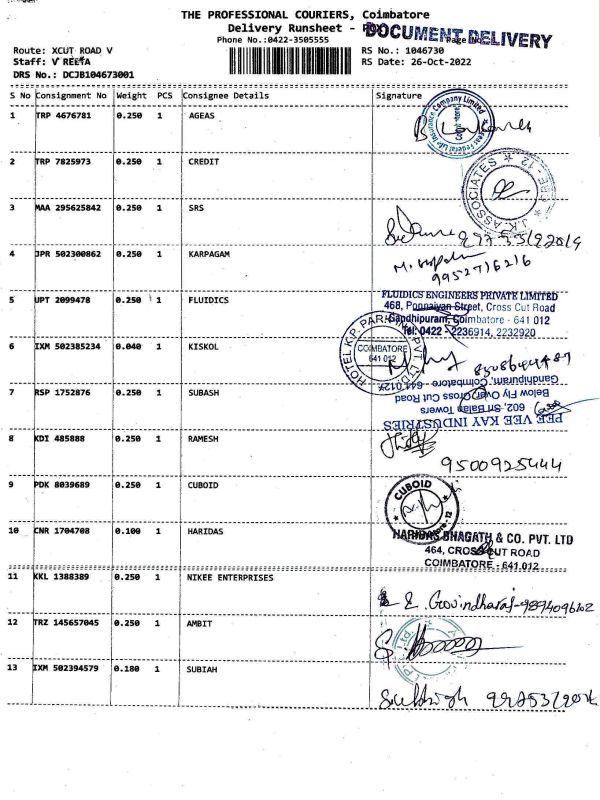 THE PROFESSIONAL COURIERS, Coimbatore
Delivery Runsheet -
DOCUMENT DELIVERY
Phone No.:0422-3505555
Route: XCUT ROAD V
RS No.: 1046730
Staff: V REETA
RS Date: 26-Oct-2022
DRS No.: DCJB104673001
S No Consignment No Weight PCS Consignee Details Signature
1 TRP 4676781 0.250 1 AGEAS
2 TRP 7825973 0.250 1 CREDIT
J.K. ASSOCIATES
3 MAA 295625842 0.250 1 SRS
4 JPR 502300862 0.250 1 KARPAGAM
9952716216
5 UPT 2099478 0.250 1 FLUIDICS
FLUIDICS ENGINEERS PRIVATE LIMITED
468, Ponnaiyan Street, Cross Cut Road
Gandhipuram, Coimbatore - 641 012
Tel: 0422 - 2236914, 2232920
6 IXM 502385234 0.040 1 KISKOL
HOTEL K.P. PVT. LTD
COIMBATORE
641 012
7 RSP 1752876 0.250 1 SUBASH
PEE VEE KAY INDUSTRIES
602, Sri Balaji Towers
Below Fly Over Cross Cut Road
Gandhipuram, Coimbatore - 641 012
8 KDI 485888 0.250 1 RAMESH
9500925444
9 PDK 8039689 0.250 1 CUBOID
CUBOID
10 CNR 1704708 0.100 1 HARIDAS
HARIDAS BHAGATH & CO. PVT. LTD
464, CROSS CUT ROAD
COIMBATORE - 641 012
11 KKL 1388389 0.250 1 NIKEE ENTERPRISES
E. Govindharaj-9894096102
12 TRZ 145657045 0.250 1 AMBIT
13 IXM 502394579 0.180 1 SUBIAH